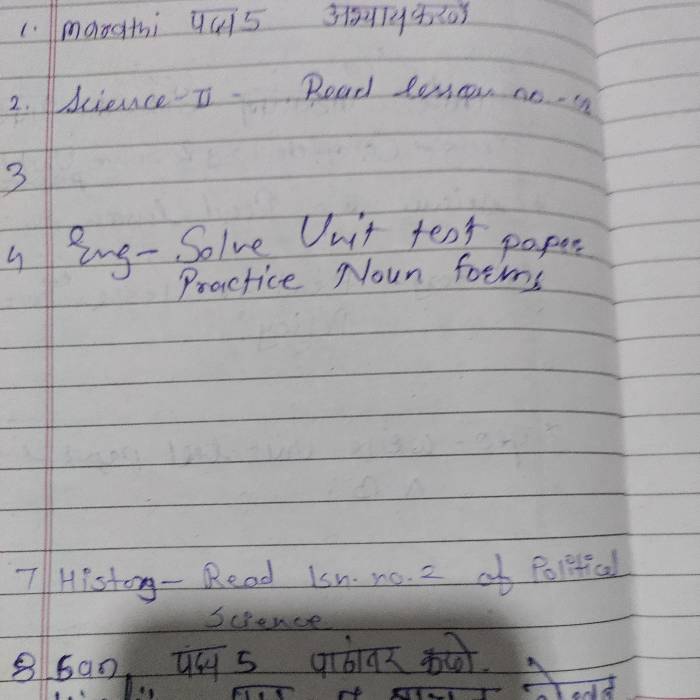 1. Marathi पद्य 5 अभ्यास करणे
2. Science-II - Read lesson no -
3
4 Eng - Solve Unit test paper
Practice Noun forms
7 History - Read lsn. no. 2 of Political
Science
8 San, पद्य 5 पाठांतर करणे.